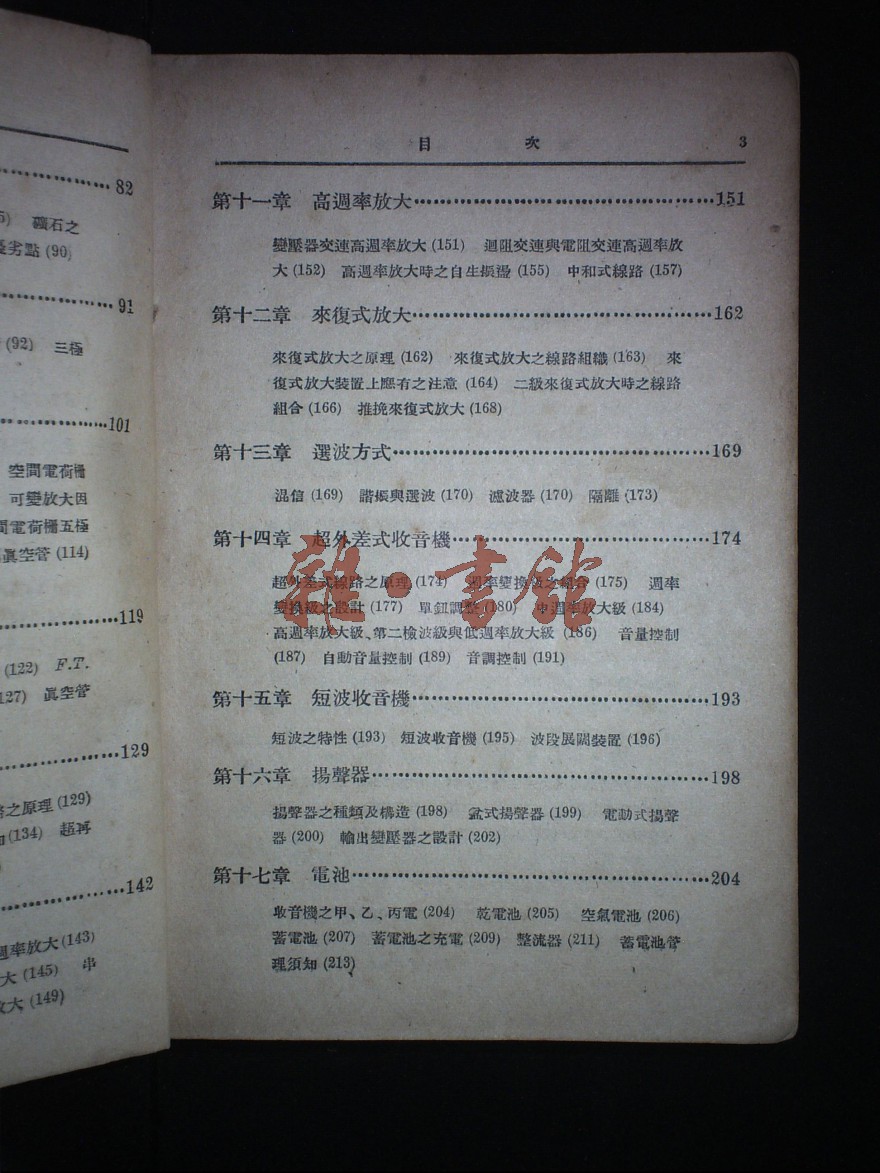 82
礦石之
劣點 (90)
91
(92) 三極
101
空間電荷柵
可變放大因
間電荷柵五極
眞空管 (114)
119
(122) F.T.
127) 眞空管
129
之原理 (129)
(134) 超再
142
週率放大 (143)
大 (145) 串
放大 (149)
目 次 3
第十一章 高週率放大……151
變壓器交連高週率放大 (151) 迴阻交連與電阻交連高週率放
大 (152) 高週率放大時之自生振盪 (155) 中和式線路 (157)
第十二章 來復式放大……162
來復式放大之原理 (162) 來復式放大之線路組織 (163) 來
復式放大裝置上應有之注意 (164) 二級來復式放大時之線路
組合 (166) 推挽來復式放大 (168)
第十三章 選波方式……169
混信 (169) 諧振與選波 (170) 濾波器 (170) 隔離 (173)
第十四章 超外差式收音機……174
超外差式線路之原理 (174) 週率變換級之組合 (175) 週率
變換級之設計 (177) 單鈕調整 (180) 中週率放大級 (184)
高週率放大級、第二檢波級與低週率放大級 (186) 音量控制
(187) 自動音量控制 (189) 音調控制 (191)
第十五章 短波收音機……193
短波之特性 (193) 短波收音機 (195) 波段展闊裝置 (196)
第十六章 揚聲器……198
揚聲器之種類及構造 (198) 盆式揚聲器 (199) 電動式揚聲
器 (200) 輸出變壓器之設計 (202)
第十七章 電池……204
收音機之甲、乙、丙電 (204) 乾電池 (205) 空氣電池 (206)
蓄電池 (207) 蓄電池之充電 (209) 整流器 (211) 蓄電池管
理須知 (213)
雜·書館